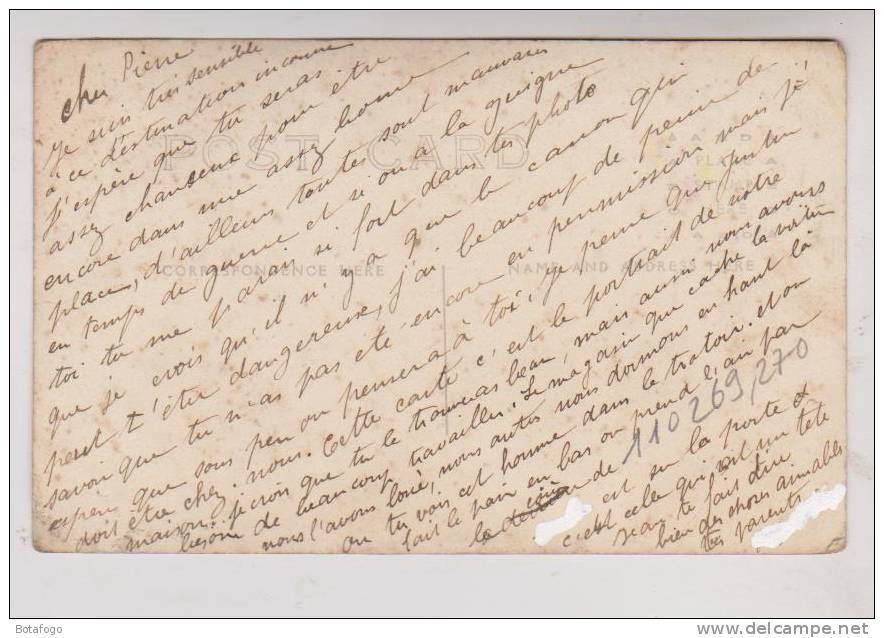 cher Pierre
Je suis très sensible
à ce destination inconnue
J'espère que tu seras
assez chanceux pour être
encore dans une assez bonne
place, d'ailleurs toutes sont mauvaises
en temps de guerre et si on a la guigne
toi tu me parais si fort dans tes photo
que je crois qu'il n'y a que le canon qui
peut t'être dangereuse, j'ai beaucoup de peine de
savoir que tu n'as pas été encore en permission mais j'é
espère que sous peu on pensera à toi, je pense que
doit être chez nous. Cette carte c'est le portrait de notre
maison, je crois que tu le trouveras beau, mais aussi nous avons
besoin de beaucoup travailler. Le magasin que cache la voiture
nous l'avons loué, nous autres nous dormons en haut là
ou tu vois cet homme dans le tratoir. et on
fait le pain en bas on prend l'au par
le de
est sur la porte et
c'est celui qui est un tête
Jean te fait dire
bien des choses aimables
tes parents
110269,270
POST CARD
CORRESPONDENCE HERE
NAME AND ADDRESS HERE
PLACE
STAMP
HERE
Botafogo
www.delcampe.net